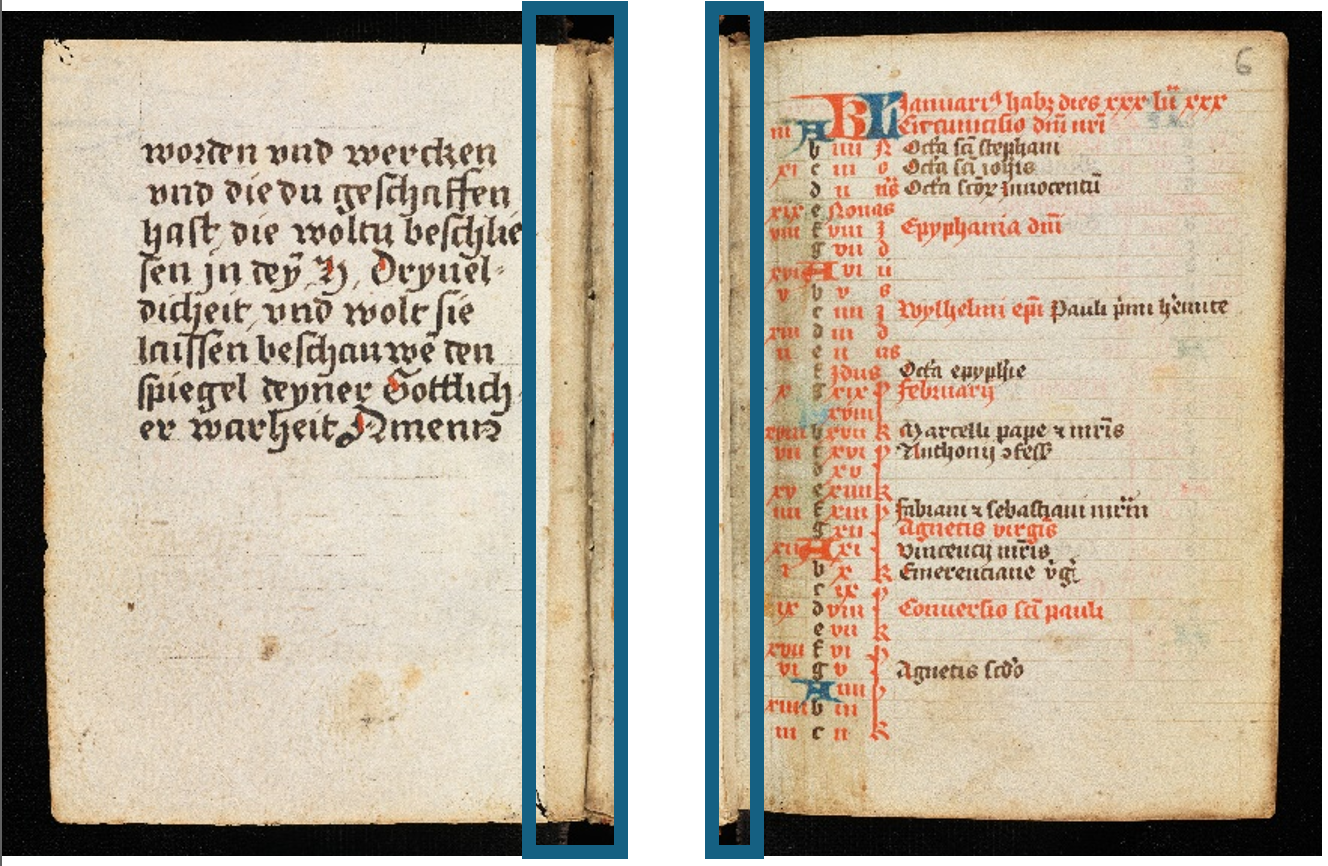 worden vnd wercken
vnd die du geschaffen
hast die woltu beschlie
sen jn dey
dicheit vnd wolt sie
laissen beschauwē den
spiegel deyner Gottlich
er warheit Amen
6
KL Januariꝰ habꝫ dies xxx lū xxx
iii A Circumcisio dm̄ nr̄i
b iiii N Octa sc̄i stephani
xi c iii o Octa sc̄i ioh̄is
d ii n̄s Octa sc̄oꝝ Innocentū
xix e Nonas
viii f viii J Epyphania dm̄
g vii d
xvi A vi u
v b v s
c iiii J Wylhelmi ep̄i Pauli
xiii d iii d
ii e ii us
f Jdus Octa epyph̄ie
x g xix Februarij
xviii
b xvii k Marcelli pape ⁊ mr̄is
vii c xvi Anthonij ɔfess
d xv
xv e xiiii k
iiii f xiii Fabiani ⁊ sebastiani mr̄m
g xii Agnetis virgīs
xii A xi Vincencij mr̄is
i b x k Emerenciane vḡi
c ix
ix d viii Conuersio sc̄i pauli
e vii k
xvii f vi
vi g v Agnetis scd̄o
A iiii
xiiii b iii
iii c ii k